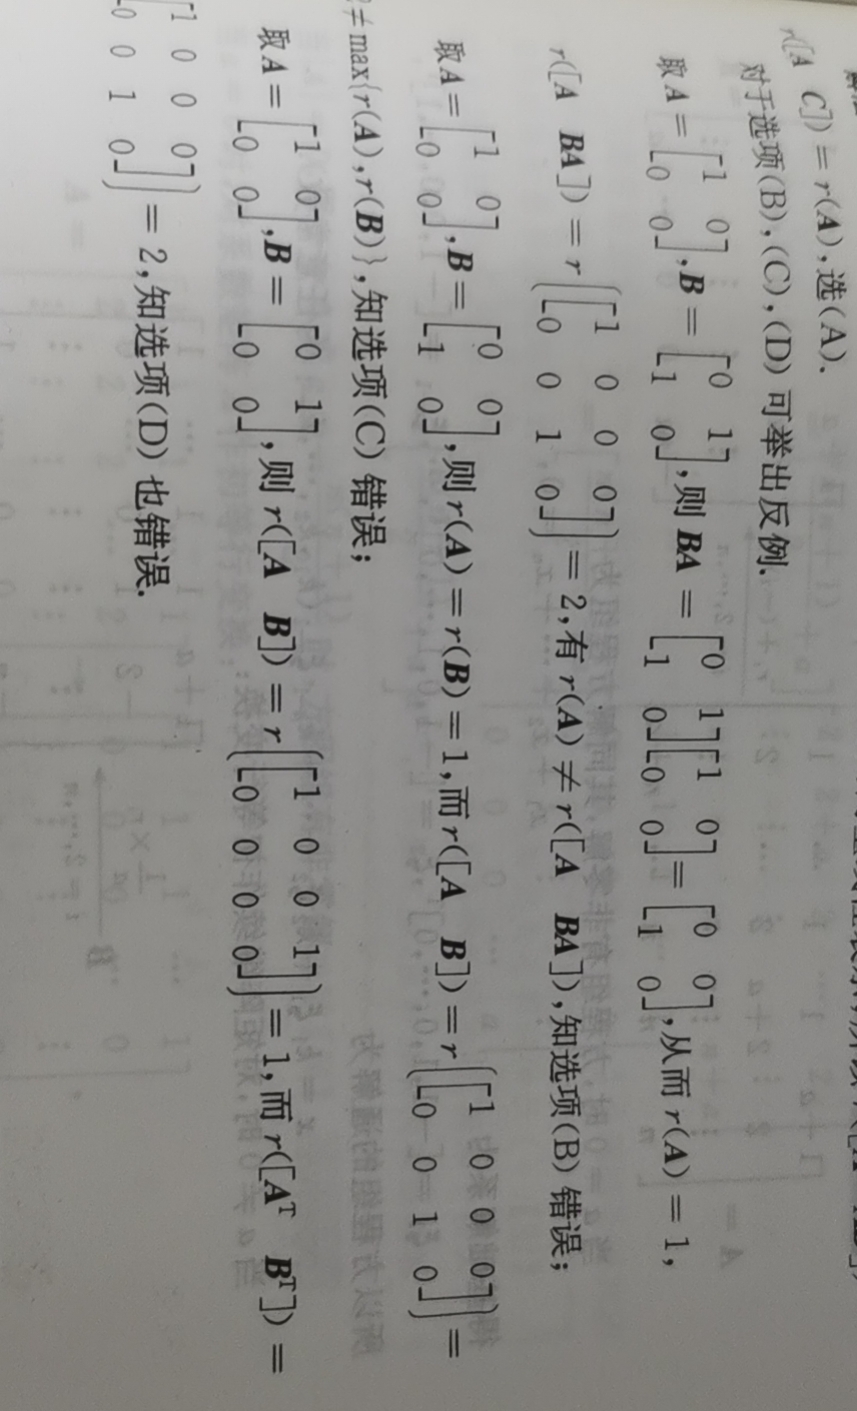 r([A C]) = r(A),选(A).
对于选项(B),(C),(D)可举出反例.
取 A = [1 0; 0 0], B = [0 1; 1 0], 则 BA = [0 1; 1 0][1 0; 0 0] = [0 0; 1 0], 从而 r(A) = 1,
r([A BA]) = r([1 0 0 0; 0 0 1 0]) = 2, 有 r(A) ≠ r([A BA]), 知选项(B)错误;
取 A = [1 0; 0 0], B = [0 0; 1 0], 则 r(A) = r(B) = 1, 而 r([A B]) = r([1 0 0 0; 0 0 1 0]) =
2 ≠ max{r(A),r(B)}, 知选项(C)错误;
取 A = [1 0; 0 0], B = [0 1; 0 0], 则 r([A B]) = r([1 0 0 1; 0 0 0 0]) = 1, 而 r([Aᵀ Bᵀ]) =
[1 0 0 0; 0 0 1 0]) = 2, 知选项(D)也错误.